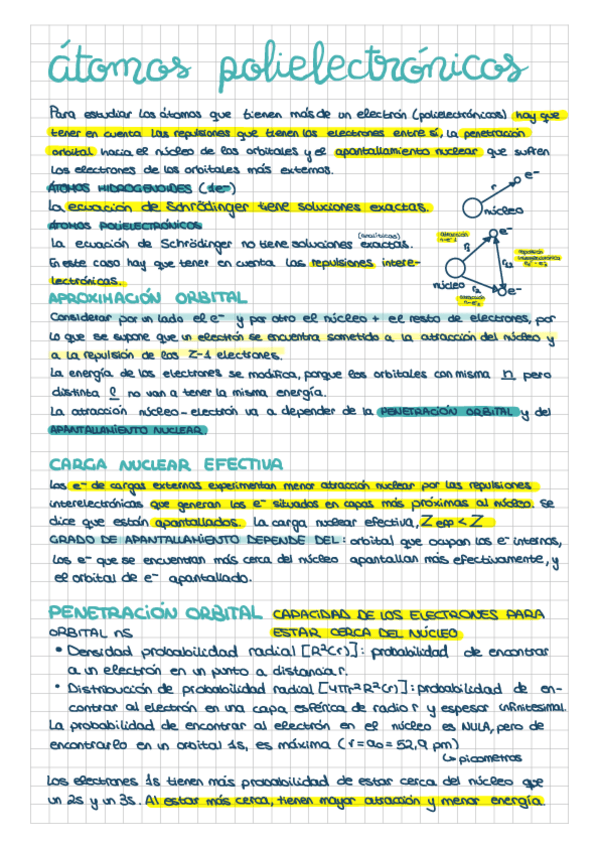 átomos polielectrónicos
Para estudiar los átomos que tienen más de un electrón (polielectrónicos) hay que
tener en cuenta las repulsiones que tienen los electrones entre sí, la penetración
orbital hacia el núcleo de los orbitales y el apantallamiento nuclear que sufren
los electrones de los orbitales más externos.
ÁTOMOS HIDROGENOIDES (1e-)
La ecuación de Schrödinger tiene soluciones exactas.
r
e-
núcleo
ÁTOMOS POLIELECTRÓNICOS
(analíticas)
La ecuación de Schrödinger no tiene soluciones exactas.
En este caso hay que tener en cuenta las repulsiones intere-
lectrónicas.
atracción
r1
e-
repulsión
interelectrónica
r12
núcleo
r2
e-
atracción
APROXIMACIÓN ORBITAL
Considerar por un lado el e- y por otro el núcleo + el resto de electrones, por
lo que se supone que un electrón se encuentra sometido a la atracción del núcleo y
a la repulsión de los Z-1 electrones.
La energía de los electrones se modifica, porque los orbitales con misma n pero
distinta l no van a tener la misma energía.
La atracción núcleo-electrón va a depender de la PENETRACIÓN ORBITAL y del
APANTALLAMIENTO NUCLEAR.
CARGA NUCLEAR EFECTIVA
Los e- de cargas externas experimentan menor atracción nuclear por las repulsiones
interelectrónicas que generan los e- situados en capas más próximas al núcleo. Se
dice que están apantallados. La carga nuclear efectiva, Zeff < Z
GRADO DE APANTALLAMIENTO DEPENDE DEL: orbital que ocupan los e- internos,
los e- que se encuentran más cerca del núcleo apantallan más efectivamente, y
el orbital de e- apantallado.
PENETRACIÓN ORBITAL CAPACIDAD DE LOS ELECTRONES PARA
ESTAR CERCA DEL NÚCLEO
ORBITAL nS
• Densidad probabilidad radial [R²(r)]: probabilidad de encontrar
a un electrón en un punto a distancia r.
• Distribución de probabilidad radial [4πr²R²(r)]: probabilidad de en-
contrar al electrón en una capa esférica de radio r y espesor infinitesimal.
La probabilidad de encontrar al electrón en el núcleo es NULA, pero de
encontrarlo en un orbital 1s, es máxima (r=a₀=52,9 pm)
↳ picometros
Los electrones 1s tienen más probabilidad de estar cerca del núcleo que
un 2s y un 3s. Al estar más cerca, tienen mayor atracción y menor energía.